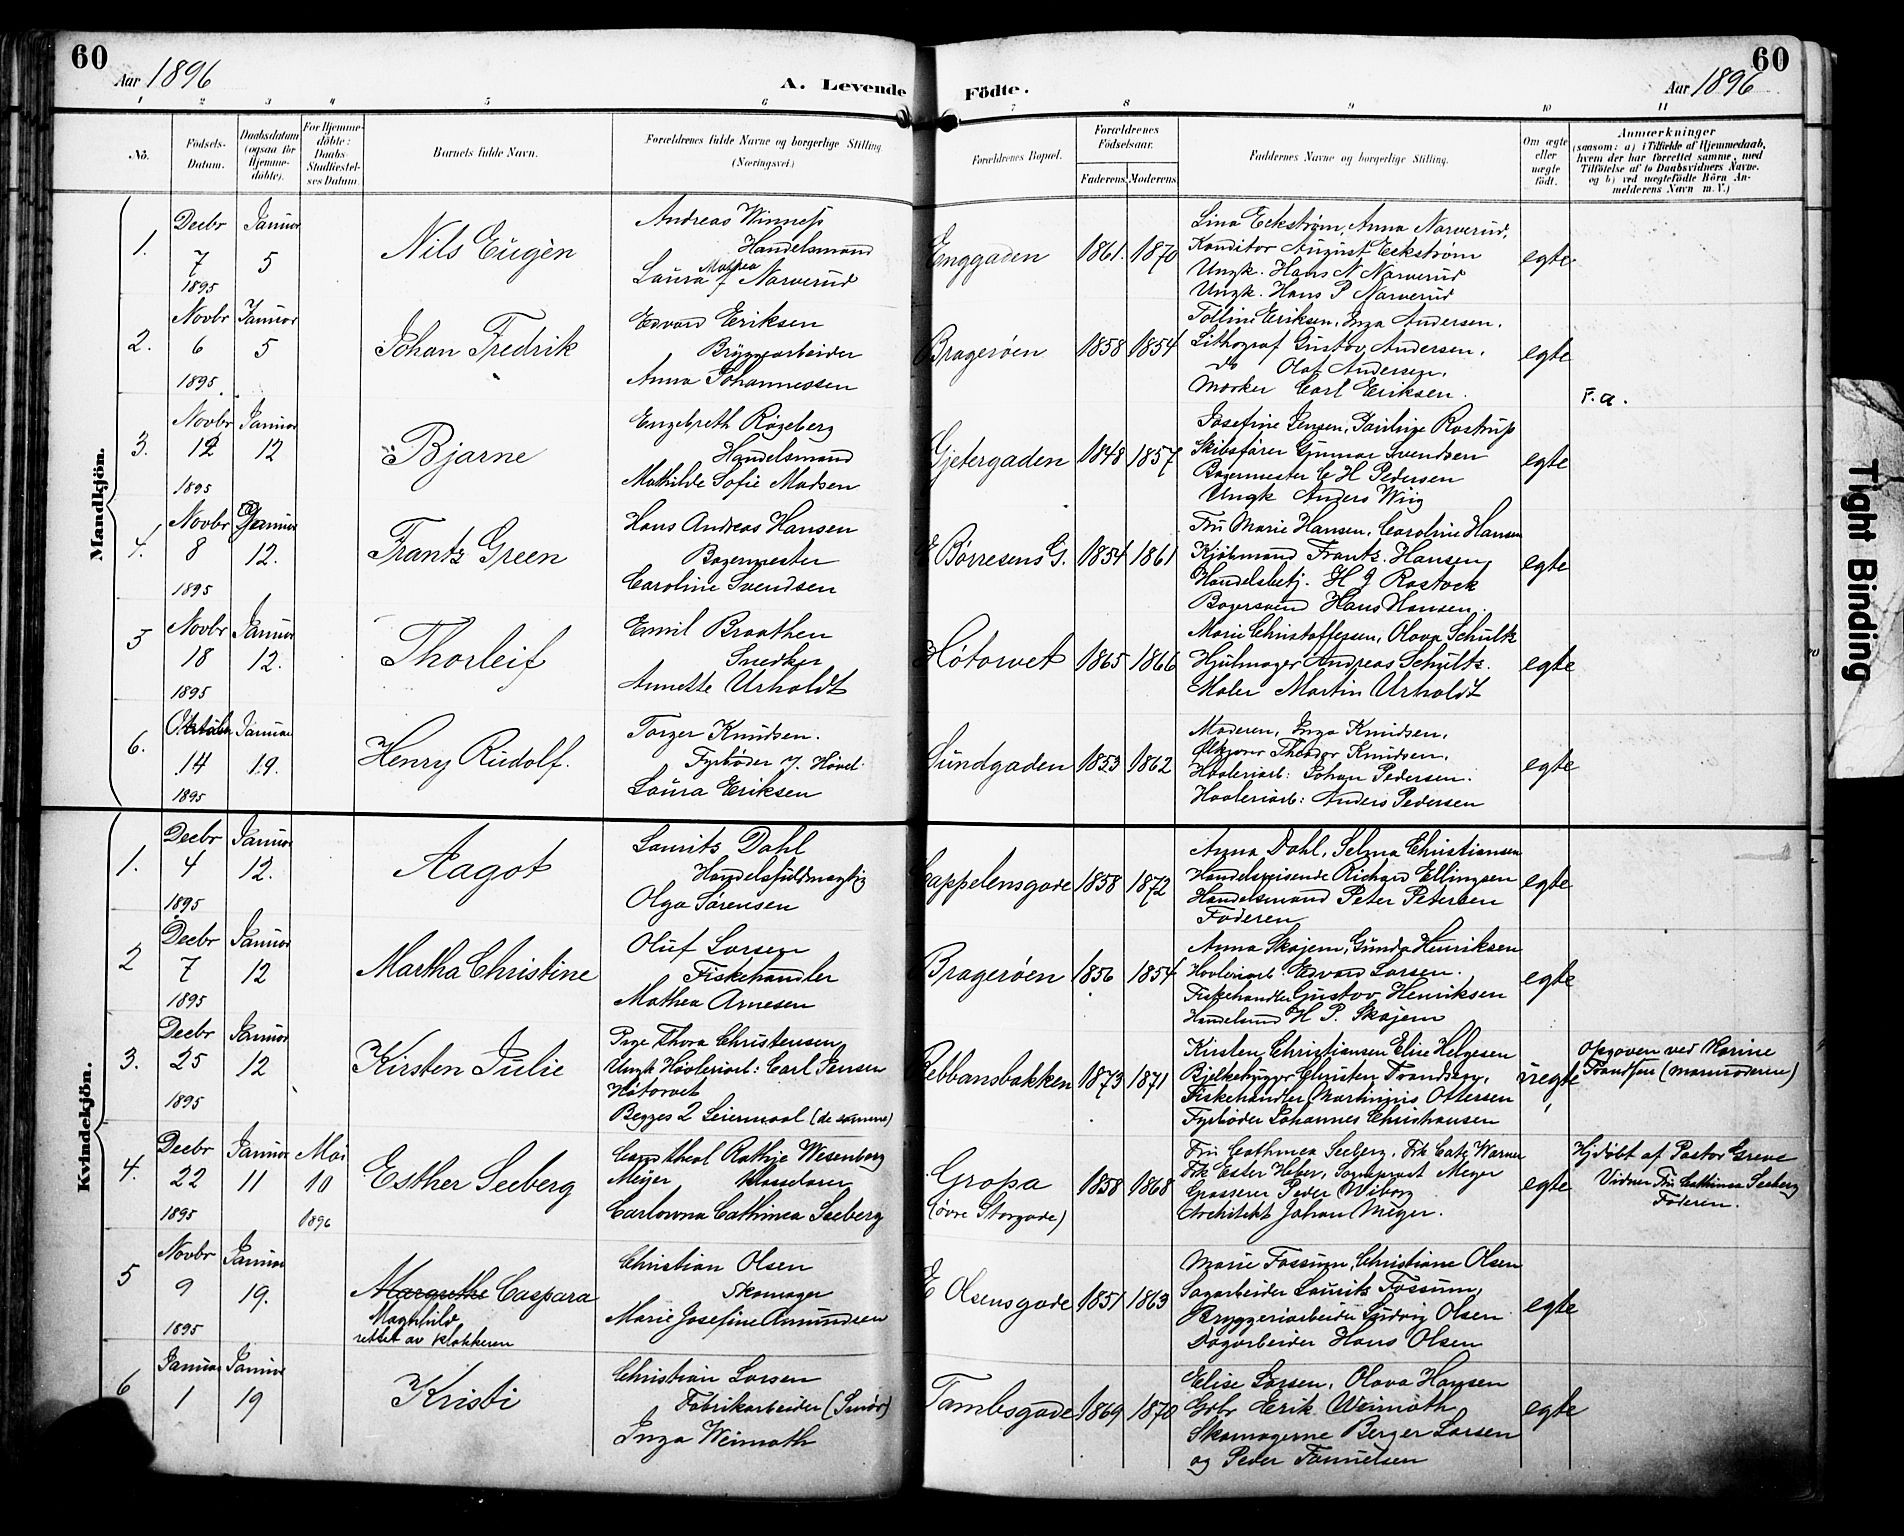 60
Aar 1896
A. Levende Födte.
Aar 1896
60
1 2 3 4 5 6 7 8 9 10 11
No.
Födsels-Datum.
Daabsdatum (ogsaa for Hjemme-döbte).
For Hjemme-döbte: Daabs-Stadfæstel-ses Datum.
Barnets fulde Navn.
Forældrenes fulde Navne og borgerlige Stilling (Næringsvei.)
Forældrenes Bopæl.
Forældrenes Födselsaar.
Faderens. Moderens.
Faddernes Navne og borgerlige Stilling.
Om ægte eller uægte födt.
Anmærkninger
(saasom: a) i Tilfælde af Hjemmedaab,
hvem der har forrettet samme, med
Tilföielse af to Daabsvidners Navne.
og b) ved uægtefödte Börn An-
melderens Navn m. V.)
Mandkjön.
1. Decbr 7 1895
Januar 5
Nils Eugèn
Andreas Winness
Handelsmand
Laura Mathea Narverud
Enggaden
1861. 1870
Lina Eckstrøm, Anna Narverud,
Konditor August Eckstrøm
Ungk. Hans N Narverud
Ungk. Hans P Narverud
egte
2. Novbr 6 1895
Januar 5
Johan Fredrik
Edvard Eriksen
Bryggearbeider
Anna Johannessen
Bragerøen
1858 1854
Tolline Eriksen, Inga Andersen.
Lithograf Gustav Andersen.
do Olaf Andersen,
Mærker Carl Eriksen.
egte
F. a.
3. Novbr 12 1895
Januar 12
Bjarne
Engebreth Røgeberg
Handelsmand
Mathilde Sofie Madsen
Gjetergaden
1848 1857
Josefine Jensen, Rostrup
Skibsfører Gunnar Svendsen
Bagermester C H Pedersen
Ungk Anders Wiig
egte
4. Novbr 8 1895
Januar 12.
Frantz Green
Hans Andreas Hansen
Bagermester
Caroline Svendsen
E Børresens G.
1854 1861
Fru Marie Hansen, Caroline Hansen
Kjøbmand Frantz. Hansen,
Handelsbetj. H J Rostock
Bagersvend Hans Hansen.
egte
5 Novbr 18 1895
Januar 12.
Thorleif
Emil Braathen
Snedker
Annette Urholdt
Høtorvet
1865 1866
Marie Christoffersen, Olava Schultz
Hjulmager Andreas Schultz.
Maler Martin Urholdt
egte
6. Oktober 14 1895
Januar 19.
Henry Rudolf.
Torger Knudsen.
Fyrbøder v. Høvel.
Laura Eriksen
Sundgaden
1853 1862
Moderen, Inga Knudsen,
Theodor Knudsen,
Høvleriarb: Johan Pedersen.
Høvleriarb: Anders Pedersen
egte
Kvindekjön.
1. Decbr 4 1895
Januar 12.
Aagot
Laurits Dahl
Handelsfuldmægtig
Olga Sørensen
Cappelensgade
1858 1872
Anna Dahl, Selma Christiansen
Handelsreisende Richard Ellingsen
Handelsmand Peter Petersen
Faderen
egte
2 Decbr 7 1895
Januar 12
Martha Christine
Oluf Larsen
Fiskehandler
Mathea Arnesen
Bragerøen
1856 1854
Anna Skajem, Gunda Henriksen
Høvleriarb. Edvard Larsen.
Fiskehandler Gustav Henriksen
Handelsmd H P. Skajem
egte
3. Decbr 25 1895
Januar 12
Kirsten Julie
Pige Thora Christensen
Ungk Høvleriarb: Carl Jensen
Høtorvet
Begges 2 Leiermaal (de samme)
Rebbansbakken
1873 1871
Kirsten Christiansen Elise Helgesen
Bjelkehugger Christen Trandsen,
Fiskehandler Martinius Ottersen
Fyrbøder Johannes Christiansen
uegte
Opgaven ved Karine
Trandsen (mormoderen)
4. Decbr 22 1895
Januar 11
Mai 10 1896
Esther Seeberg
Cand theol Rathje Wesenberg
Meyer Klasselærer
Carlowna Cathinca Seeberg
Gropa
(øvre Storgade)
1858 1868
Fru Cathinca Seeberg, Frk Cath. Warner
Frk Ester Heber, Sogneprest Meyer
Grosserer Peder Wiborg
Architekt Johan Meyer.
egte
Hjdøbt af Pastor Greve
Vidner Fru Cathinca Seeberg
Faderen.
5 Novbr 9 1895
Januar 19.
Margrethe Caspara
Magnhild
rettet av klokkeren
Christian Olsen
Skomager
Marie Josefine Amundsen
E Olsensgade
1851 1863
Marie Fossum, Christiane Olsen
Sagarbeider Laurits Fossum,
Bryggeriarbeider Ludvig Olsen
Dagarbeider Hans Olsen
egte
6 Januar 1
Januar 19
Kristi
Christian Larsen
Fabrikarbeider (Smør)
Inga Weimoth
Tambsgade
1869 1870
Elise Larsen, Olava Hansen
Grbr Erik Weimoth
Skomagerne Berger Larsen
og Peder
egte
Tight Binding